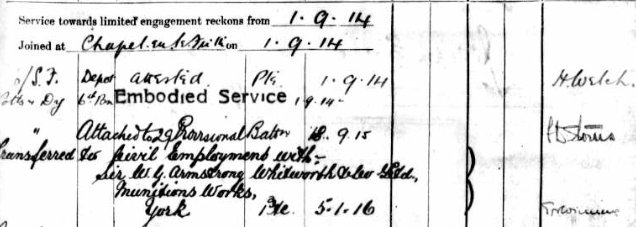 Service towards limited engagement reckons from 1.9.14
Joined at Chapel-en-le-Frith on 1.9.14
S.F. Depot attested Pte 1.9.14 H. Welch.
Notts & Dy 6th Bn Embodied Service 1.9.14
" Attached to 29 Provisional Batn 18.9.15
Transferred to Civil Employment with:-
Sir W. G. Armstrong Whitworth & Co Ltd,
Munitions Works,
York Pte. 5-1-16